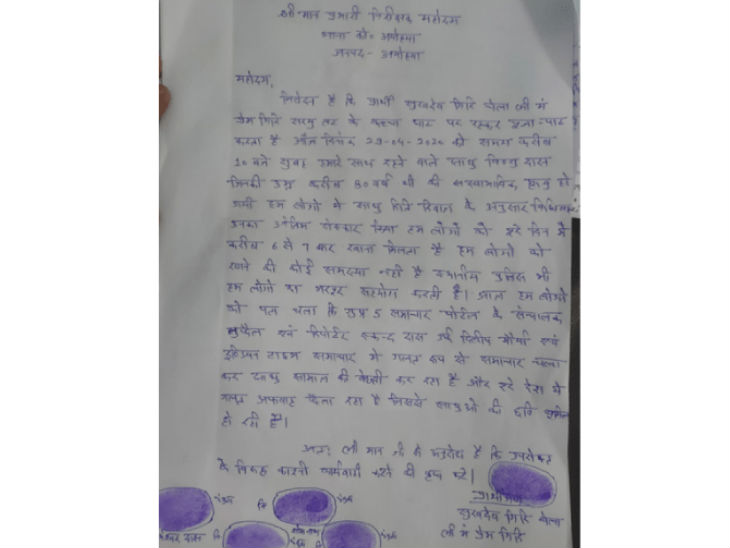 श्री मान प्रभारी निरीक्षक महोदय
थाना को० अयोध्या
जनपद- अयोध्या
महोदय,
निवेदन है कि प्रार्थी सुखदेव गिरि चेला श्री मं
प्रेम गिरि सरयु तट के कच्चा घाट पर रहकर पूजा पाठ
करता है आज दिनांक 29-04-2020 को समय करीब
10 बजे सुबह हमारे साथ रहने वाले साधु विष्णु दास
जिनकी उम्र करीब 80 वर्ष थी की स्वाभाविक मृत्यु हो
गयी हम लोगों ने साधु रिति रिवाज के अनुसार विधिवत
उनका अंतिम संस्कार किया हम लोगों को पूरे दिन में
करीब 6 से 7 बार खाना मिलता है हम लोगों को
खाने की कोई समस्या नहीं है स्थानीय पुलिस भी
हम लोगों का भरपूर सहयोग करती है। आज हम लोगों
को पता चला कि समाचार पोर्टल के संचालक
एवं रिपोर्टर दास उर्फ दिलीप मौर्या एवं
इण्डियन टाइम समाचार में गलत रूप से समाचार चला
कर साधु समाज की बेइज्जती कर रहा है और पूरे देश में
गलत अफवाह फैला रहा है जिससे साधुओं की छवि धूमिल
हो रही है।
अतः श्री मान जी से अनुरोध है कि उपरोक्त
के विरूद्ध कानूनी कार्यवाही करने की कृपा करें।
प्रार्थीगण
सुखदेव गिरि चेला
श्री मं प्रेम गिरि